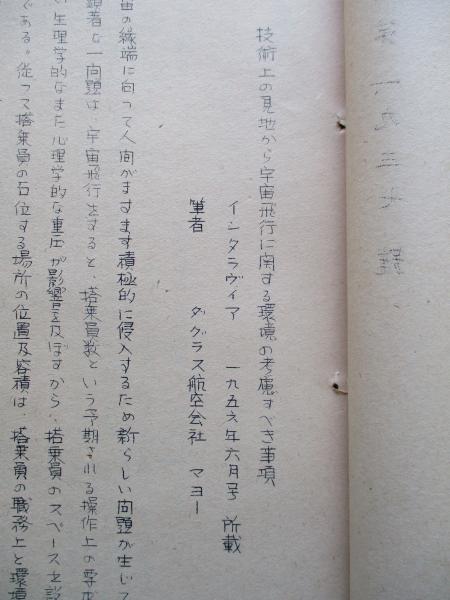 技術上の見地から宇宙飛行に関する環境の考慮すべき事項
インタラヴィア 一九五六年六月号 所載
筆者 ダグラス航空会社 マヨー
宙の縁端に向って人間がますます積極的に侵入するため新らしい問題が生じて
顕著な一問題は、宇宙飛行をすると、搭乗員数という予期される操作上の要求
生理学的なまた心理学的な重圧が影響を及ぼすから、搭乗員のスペースを設
である。従って搭乗員の占位する場所の位置及容積は、搭乗員の職務上と環境